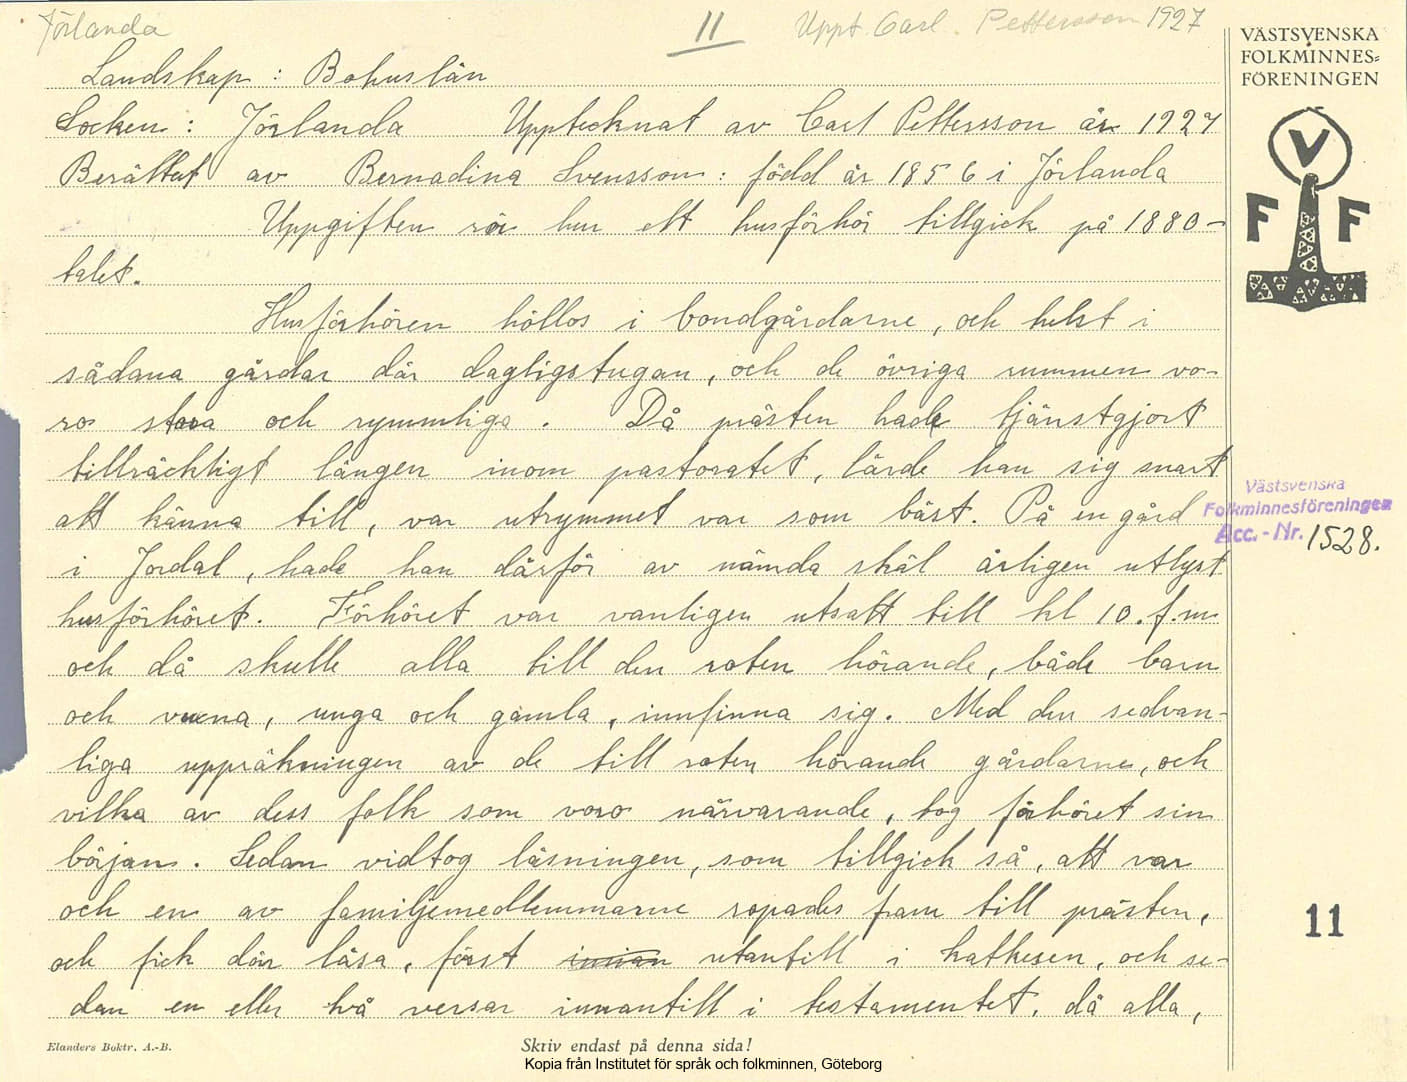 Jörlanda
11
Uppt. Carl. Pettersson 1927
VÄSTSVENSKA
FOLKMINNES=
FÖRENINGEN
V
F F
Landskap : Bohuslän
Socken : Jörlanda Upptecknat av Carl Pettersson år 1927
Berättat av Bernadina Svensson : född år 1856 i Jörlanda
Uppgiften rör hur ett husförhör tillgick på 1880-
talet.
Husförhören höllos i bondgårdarne, och helst i
sådana gårdar där dagligstugan, och de övriga rummen vo-
ro stora och rymmliga. Då prästen hade tjänstgjort
tillräckligt längen inom pastoratet, lärde han sig snart
att känna till, var utrymmet var som bäst. På en gård
i Jordal, hade han därför av nämda skäl årligen utlyst
husförhöret. Förhöret var vanligen utsatt till kl 10. f.m
och då skulle alla till den roten hörande, både barn
och vuxna, unga och gamla, innfinna sig. Med den sedvan-
liga uppräkningen av de till roten hörande gårdarne, och
vilka av dess folk som voro närvarande, tog förhöret sin
början. Sedan vidtog läsningen, som tillgick så, att var
och en av familjemedlemmarne ropades fram till prästen,
och fick där läsa, först innan utantill i kathesen, och se-
dan en eller två versar innantill i testamentet, då alla,
Västsvenska
Folkminnesföreningen
Acc.-Nr. 1528.
11
Elanders Boktr. A.-B.
Skriv endast på denna sida!
Kopia från Institutet för språk och folkminnen, Göteborg